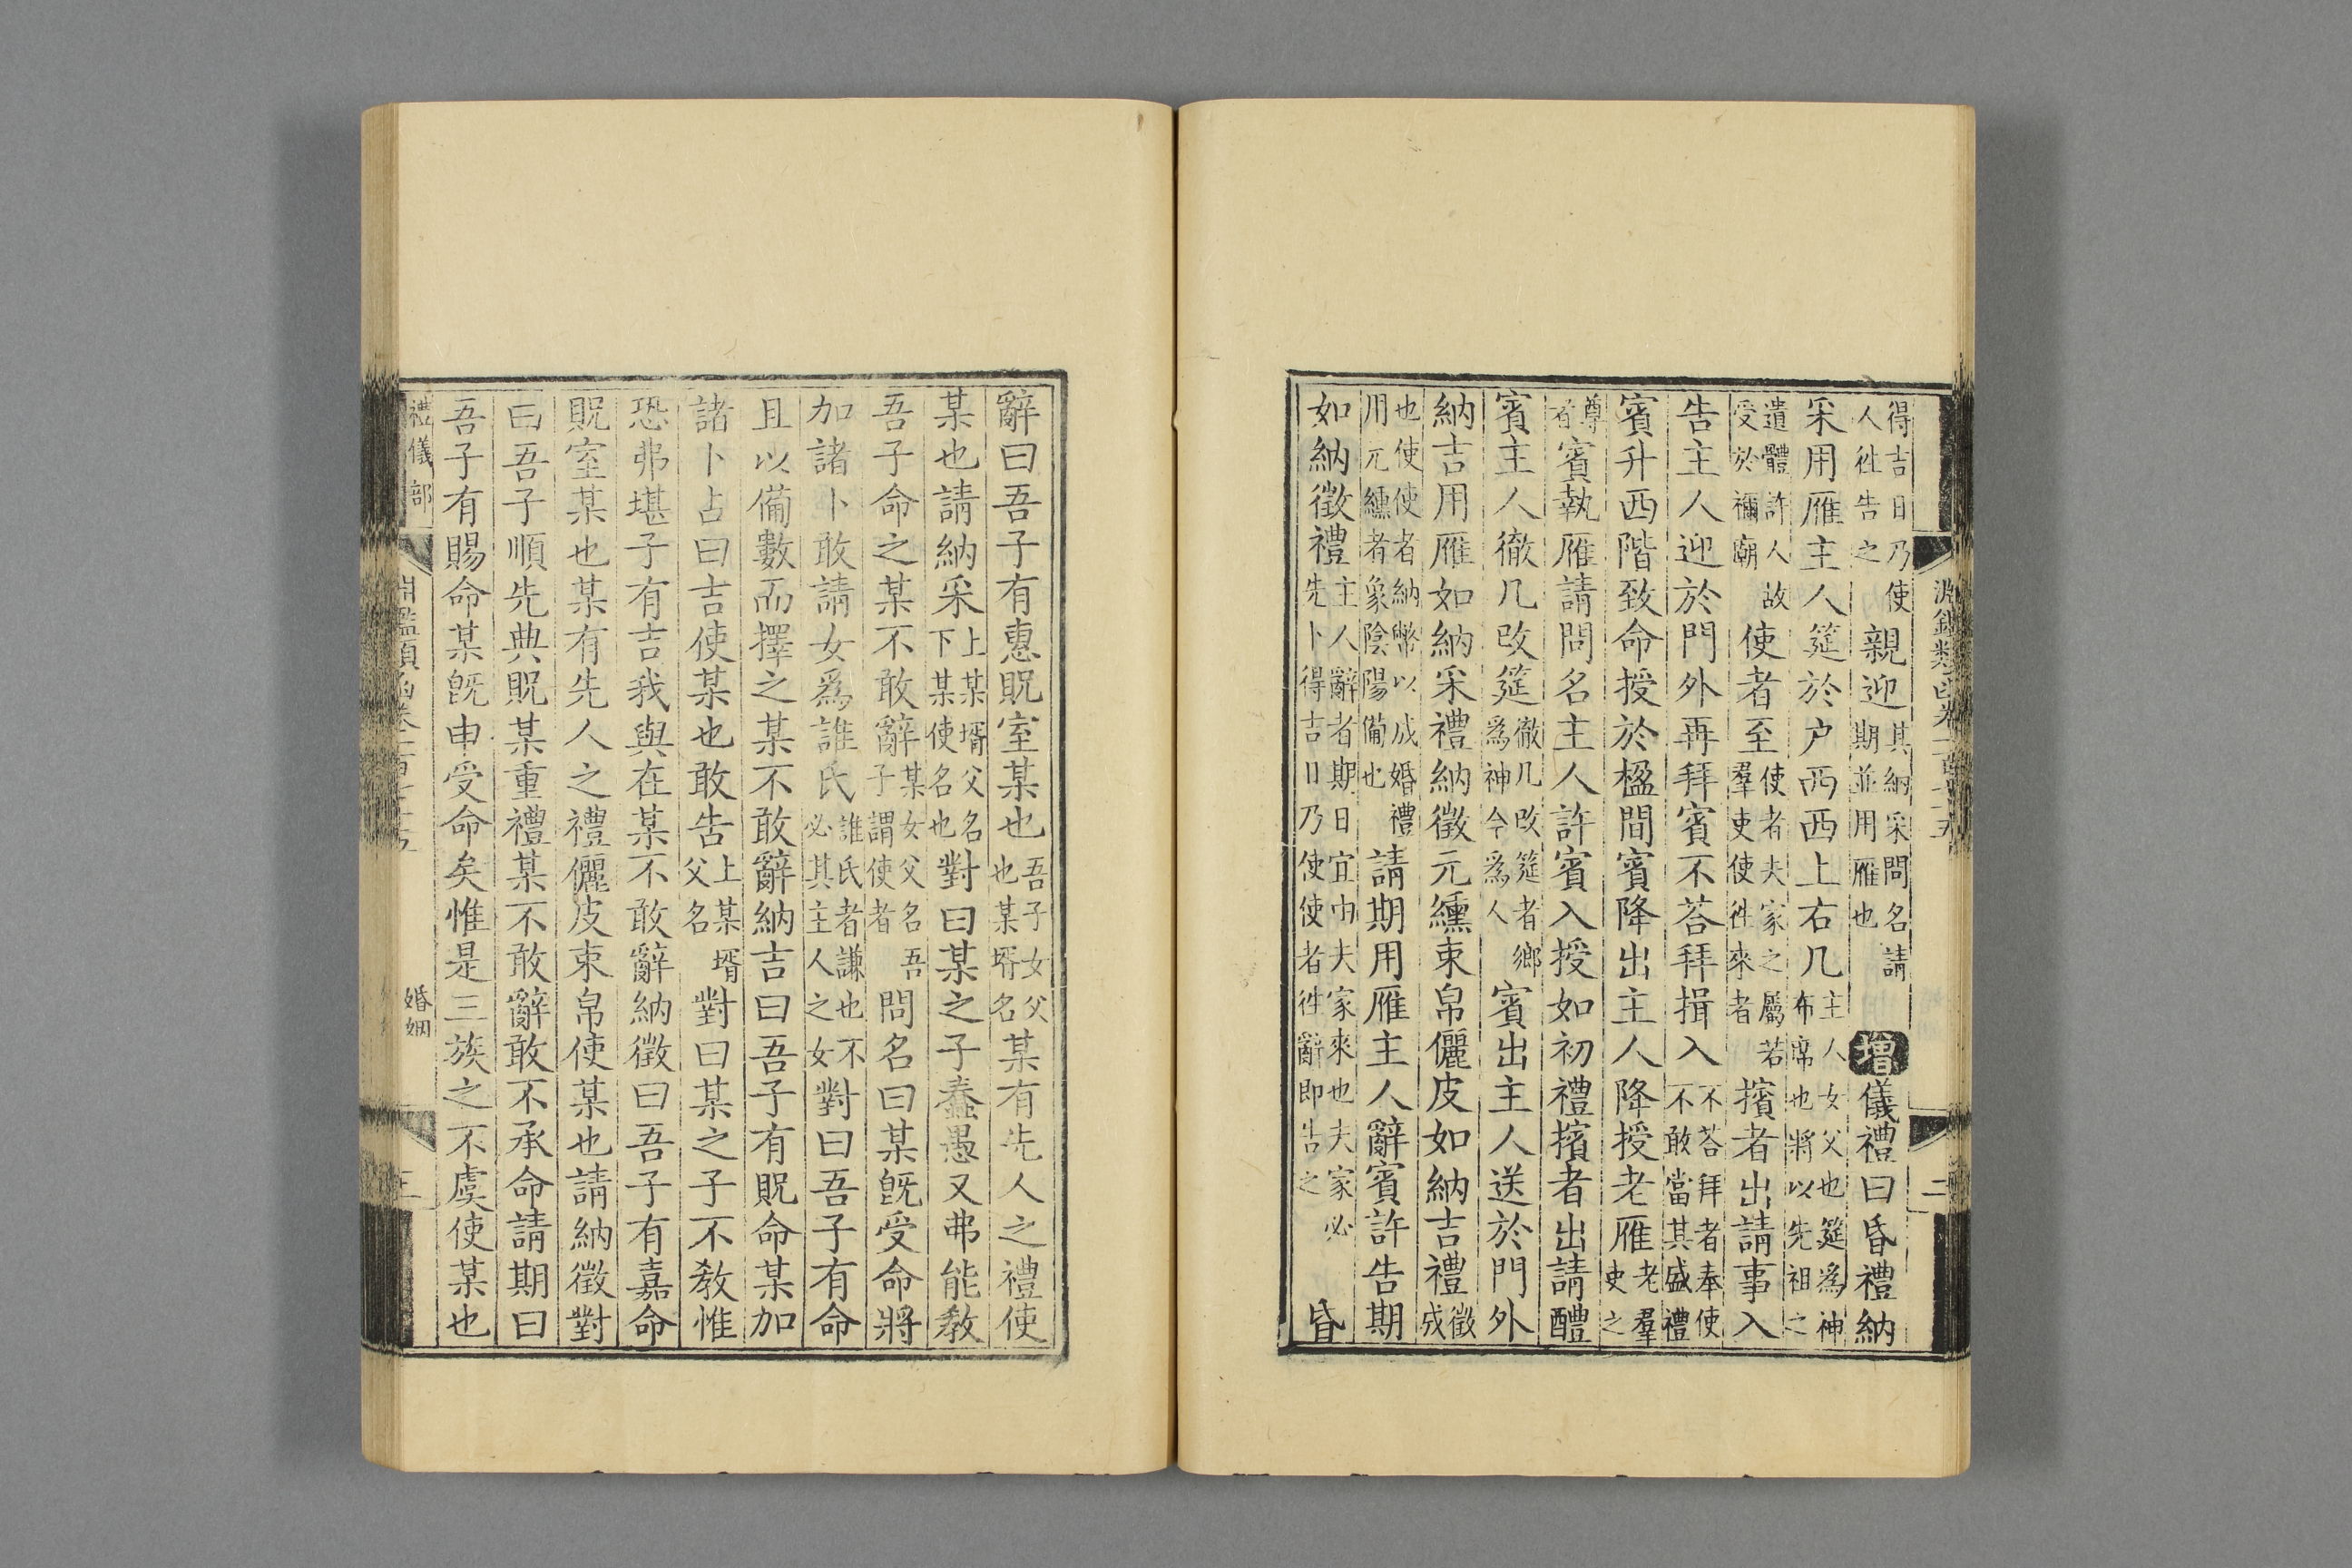 淵鑑類函卷一百七十五 二
得吉日乃使人徃告之親迎其納采問名請期並用雁也增儀禮曰昏禮納
采用雁主人筵於户西西上右几主人女父也筵為神布席也將以先祖之
遺體許人故受於禰廟使者至使者夫家之屬若羣吏使徃來者擯者出請事入
告主人迎於門外再拜賓不荅拜揖入不荅拜者奉使不敢當其盛禮
賓升西階致命授於楹間賓降出主人降授老雁老羣吏之
尊者賓執雁請問名主人許賓入授如初禮擯者出請醴
賓主人徹几改筵徹几改筵者鄉為神今為人賓出主人送於門外
納吉用雁如納采禮納徵元纁束帛儷皮如納吉禮徵成
也使使者納幣以成婚禮用元纁者象陰陽備也請期用雁主人辭賓許告期
如納徵禮主人辭者期日宜由夫家來也夫家必先卜得吉日乃使使者徃辭即告之昏
辭曰吾子有惠貺室某也吾子女父也某壻名某有先人之禮使
某也請納采上某壻父名下某使名也對曰某之子惷愚又弗能敎
吾子命之某不敢辭某女父名吾子謂使者問名曰某旣受命將
加諸卜敢請女爲誰氏誰氏者謙也不必其主人之女對曰吾子有命
且以備數而擇之某不敢辭納吉曰吾子有貺命某加
諸卜占曰吉使某也敢告上某壻父名對曰某之子不敎惟
恐弗堪子有吉我與在某不敢辭納徵曰吾子有嘉命
貺室某也某有先人之禮儷皮束帛使某也請納徵對
曰吾子順先典貺某重禮某不敢辭敢不承命請期曰
吾子有賜命某旣申受命矣惟是三族之不虞使某也
禮儀部 婚姻